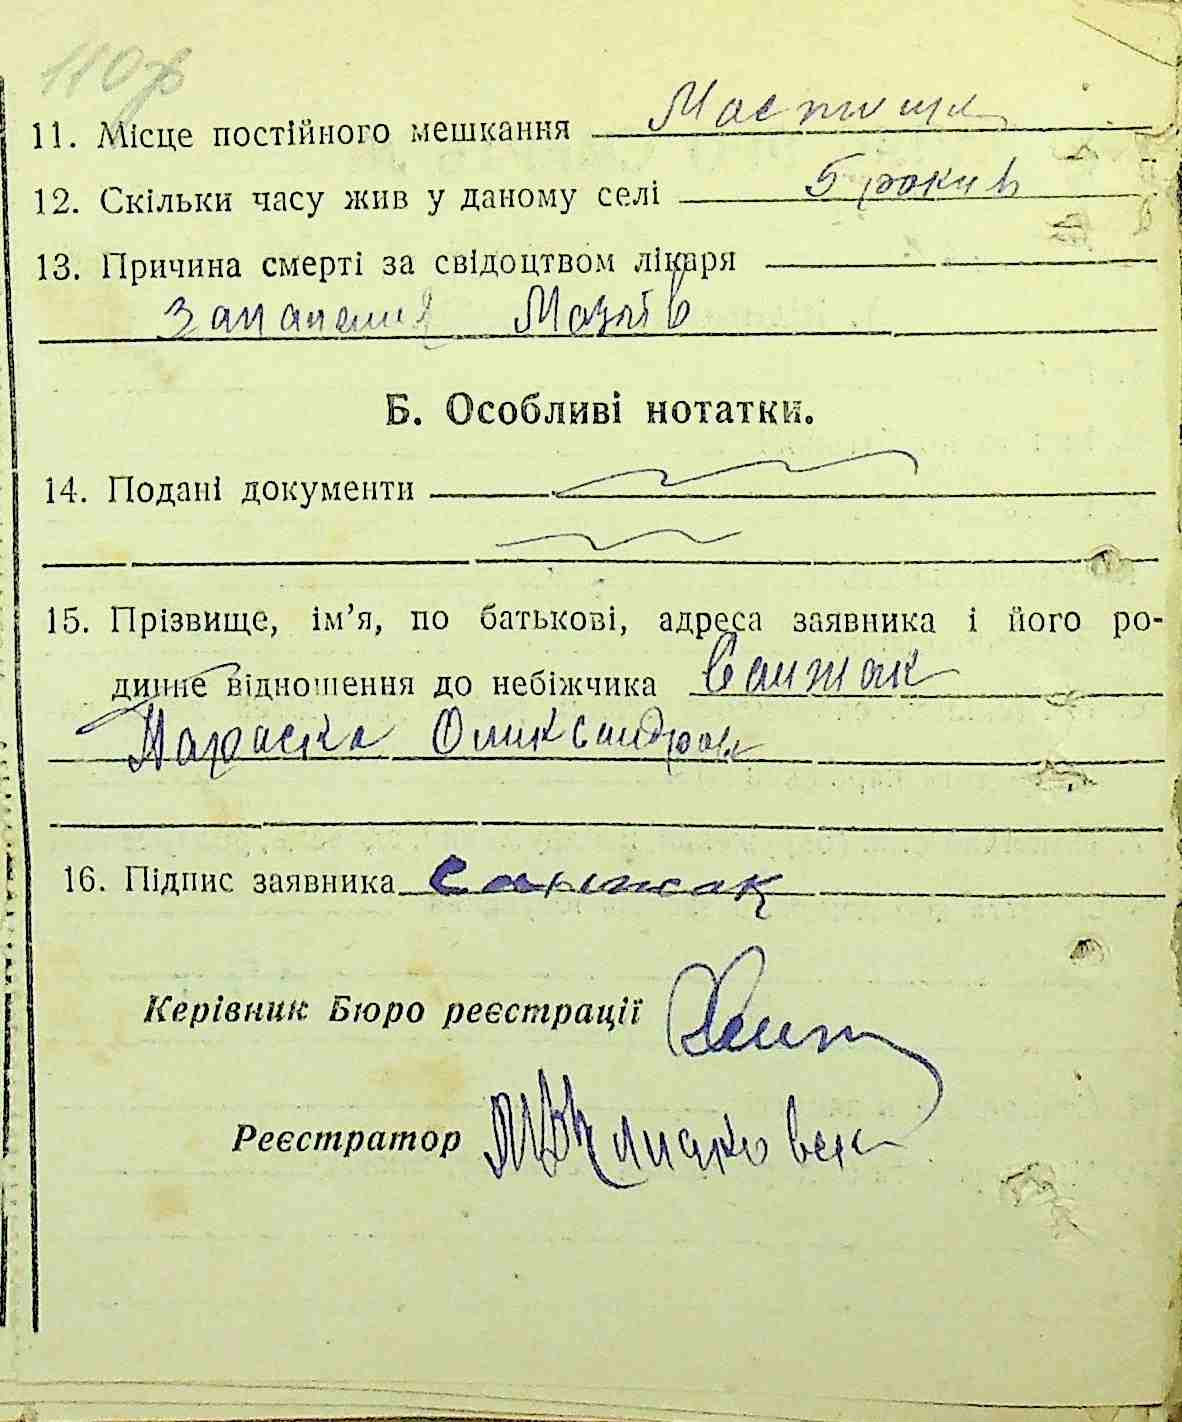 110 р
11. Місце постійного мешкання Мостища
12. Скільки часу жив у даному селі 5 років
13. Причина смерті за свідоцтвом лікаря
Запаления Мозгів
Б. Особливі нотатки.
14. Подані документи
15. Прізвище, ім’я, по батькові, адреса заявника і його ро-
динне відношення до небіжчика Санжак
Параска Олександров
16. Підпис заявника Санжак
Керівник Бюро реєстрації
Реєстратор